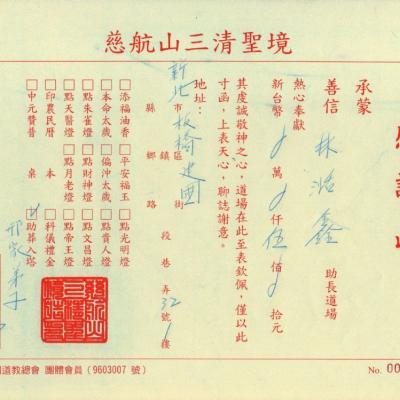 慈航山三清聖境
承蒙
善信 林 鑫 助長道場
熱心奉獻
新台幣 萬 仟 伍 佰 拾元
其度誠敬神之心，道場在此至表欽佩，僅以此
寸函，上表天心，聊誌謝意。
地址：新北市板橋區建國
縣 鄉鎮 路街 段 巷 弄 32 號 1 樓
□添福油香 □平安福玉 □點光明燈
□本命太歲 □偏沖太歲 □點貴人燈
□點朱雀燈 □點財神燈 □點文昌燈
□點天醫燈 □點月老燈 □點帝王燈
□印農民曆 本 □科儀禮金
□中元贊普 桌 助葬入塔
道教總會 團體會員（9603007 號）
No. 00